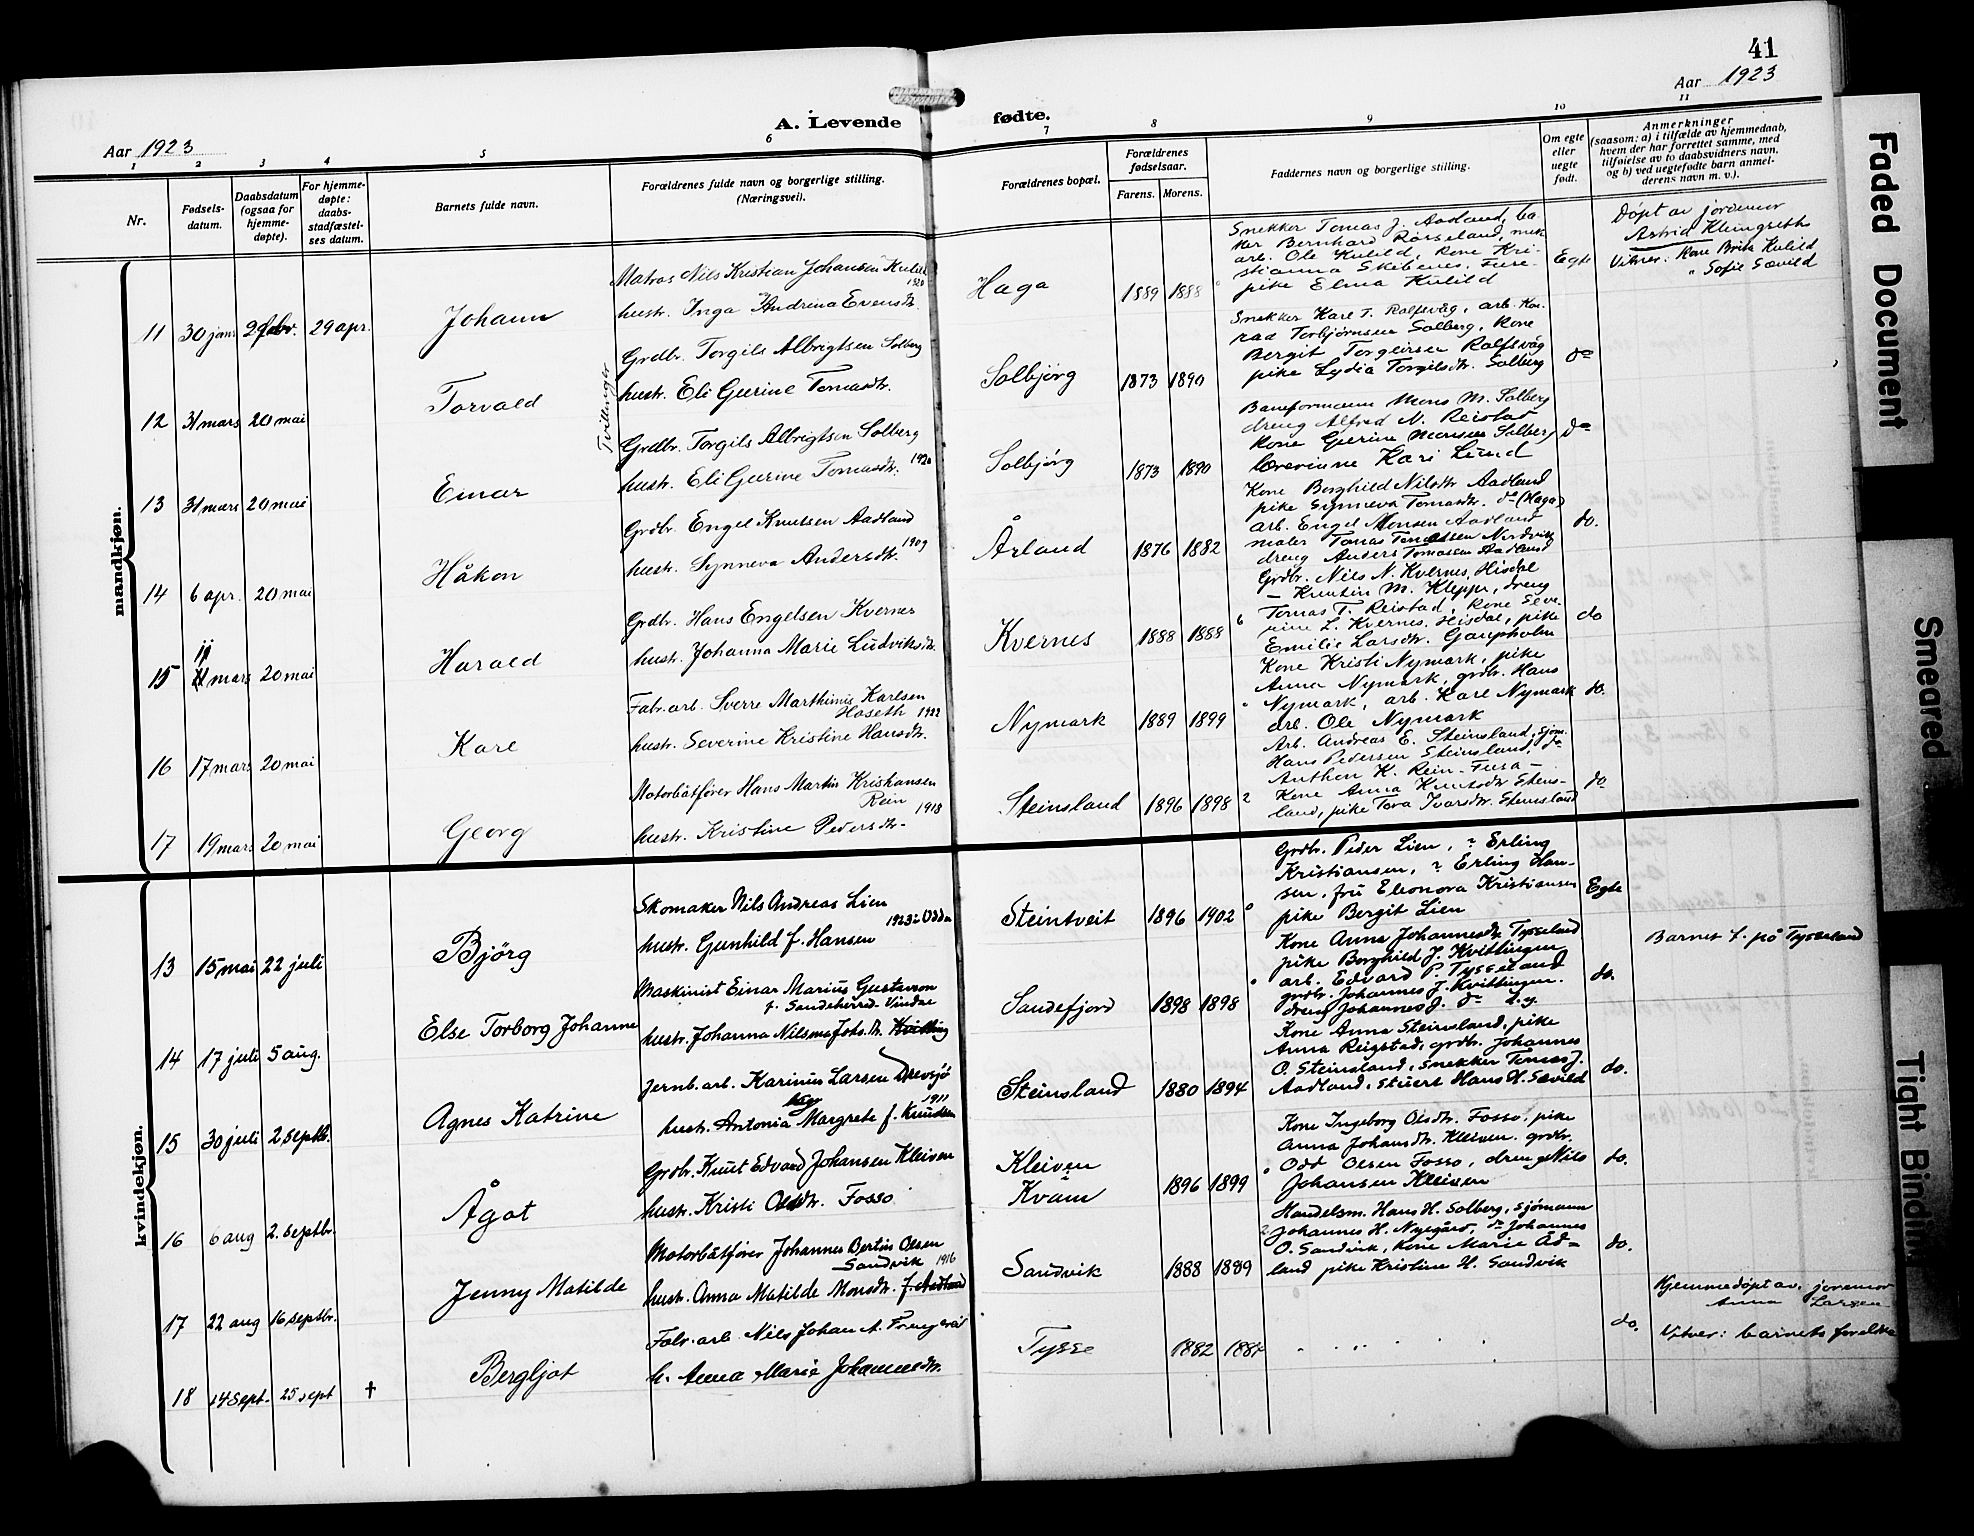 41
Aar 1923
Aar 1923
A. Levende fødte.
1 2 3 4 5 6 7 8 9 10 11
Nr.
Fødsels-
datum.
Daabsdatum
(ogsaa for
hjemme-
døpte).
For hjemme-
døpte:
daabs-
stadfæstel-
ses datum.
Barnets fulde navn.
Forældrenes fulde navn og borgerlige stilling.
(Næringsvei).
Forældrenes bopæl.
Forældrenes
fødselsaar.
Farens. Morens.
Faddernes navn og borgerlige stilling.
Om egte
eller
uegte
født.
Anmerkninger
(saasom: a) i tilfælde av hjemmedaab,
hvem der har forrettet samme, med
tilføielse av to daabsvidners navn,
og b) ved uegtefødte barn anmel-
derens navn m. v.).
mandkjøn.
11 30 jan. 2 febr. 29 apr. Johann
Matros Nils Kristian Johansen Kulild
1920
hustr. Inga Andrina Evensdtr.
Haga 1889 1888
Snekker Tomas J. Aadland, ba-
ker Bernhard Rørseland, mek.
arb. Ole Kulild, kone Kri-
stianna Skibenes, Fure-
pike Elma Kulild
Egte
Døpt av jordmor
Astrid Kleingreths
Vitner: Kone Brita Kulild
" Sofie Sævild
12 31 mars 20 mai Torvald
Tvillinger
Grdbr. Torgils Albrigtsen Solberg
hustr. Eli Gurine Tomasdtr.
Solbjørg 1873 1890
Snekker Karl T. Rolfsvåg, arb. Kon-
rad Torbjørnsen Solberg, Kone
Bergit Torgeirsen Rolfsvåg
pike Lydia Torgilsdtr. Solberg
do
13 31 mars 20 mai Einar
Grdbr. Torgils Albrigtsen Solberg
hustr. Eli Gurine Tomasdtr. 1920
Solbjørg 1873 1890
Baneformann Mons M. Solberg
dreng Alfred N. Reistad
kone Gurine Monsen Solberg
lærerinne Kari Lund
do
14 6 apr. 20 mai Håkon
Grdbr. Engel Knutsen Aadland
1909
hustr. Synneva Andersdtr.
Årland 1876 1882
Kone Borghild Nilsdtr Aadland
pike Synneva Tomasdtr. do (Haga)
arb. Engel Monsen Aadland
maler Tomas Tomassen Nordvik
dreng Anders Tomasen Aadland
do.
15 11 mars 20 mai Harald
Grdbr. Hans Engelsen Kvernes
hustr. Johanna Marie Ludviksdtr.
Kvernes 1888 1888 6
Grdbr. Nils N. Kvernes, Hisdal
— Knut M. Kleppe, dreng
Tomas T. Reistad, kone Seve-
rine L. Kvernes, Hisdal, pike
Emilie Larsdtr. Gaupholm
do
16 17 mars 20 mai Kare
Fabr.arb. Sverre Marthinus Karlsen
Haseth 1922
hustr. Severine Kristine Hansdtr.
Nymark 1889 1899
Kone Kristi Nymark, pike
Anna Nymark, grdbr. Hans
Nymark, arb. Karl Nymark
arb. Ole Nymark
do.
17 19 mars 20 mai Georg
Motorbåtfører Hans Martin Kristiansen
Rein 1918
hustr. Kristine Pedersdtr.
Steinsland 1896 1898 2
Arb. Andreas E. Steinsland, sjøm.
Hans Pedersen Steinsland, do
Anthon K. Rein - Fusa -
Kone Anna Knutsdtr Steins-
land, pike Tora Ivarsdtr. Steinsland
do
kvindekjøn.
13 15 mai 22 juli Bjørg
Skomaker Nils Andreas Lien
1923 i Odda
hustr. Gunhild f. Hansen
Steintveit 1896 1902 0
Grdbr. Peder Lien, ? Erling
Kristiansen, ? Erling Han-
sen, fru Eleonora Kristiansen
pike Bergit Lien
Egte
Barnet f. på Tysseland
14 17 juli 5 aug. Else Torborg Johanne
Maskinist Einar Marius Gustavson
f. Sandeherred. Vindne
hustr. Johanna Nilsina Johs.dtr. Kvitting
Sandefjord 1898 1898
Kone Anna Johannesdtr. Tysseland
pike Borghild J. Kvittingen
arb. Edvard P. Tysseland
grdbr. Johannes J. Kvittingen.
dreng Johannes J. do
do.
15 30 juli 2 septbr. Agnes Katrine
Jernb. arb. Karinus Larsen Drevsjø
1911
hustr. Antonia Margrete f. Knudsen
Steinsland 1880 1894
Kone Anna Steinsland, pike
Anna Reigstad, grdbr. Johannes
O. Steinsland, Snekker Tomas J.
Aadland, Stuert Hans H. Sævild
do.
16 6 aug 2. septbr. Ågot
Grdbr. Knut Edvard Johansen Kleiven
hustr. Kristi Olsdtr. Fosso
Kleiven
Kvam 1896 1899
Kone Ingeborg Olsdtr. Fosso, pike
Anna Johansdtr. Kleiven. grdbr.
Odd Olsen Fosso, dreng Nils
Johansen Kleiven
do.
17 22 aug 16 septbr. Jenny Matilde
Motorbåtfører Johannes Bertin Olsen
Sandvik 1916
hustr. Anna Matilde Monsdtr. f. Aadland
Sandvik 1888 1889 2
Handelsm. Hans H. Solberg, sjømann
Johannes H. Nygård, do Johannes
O. Sandvik, kone Marie Åd-
land pike Kristine H. Sandvik
do.
18 14 sept. 25 sept † Bergljot
Fabr. arb. Nils Johan A.
h. Anna Marie Johannesdtr.
Tysse 1882 1884
do.
Hjemmedøpt av: jordmor
Anna Larsen
Vitner: barnets foreldre
Faded Document
Smeared
Tight Binding